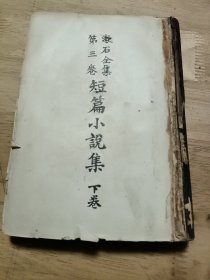 漱石全集
第三卷
短篇小説集 下卷